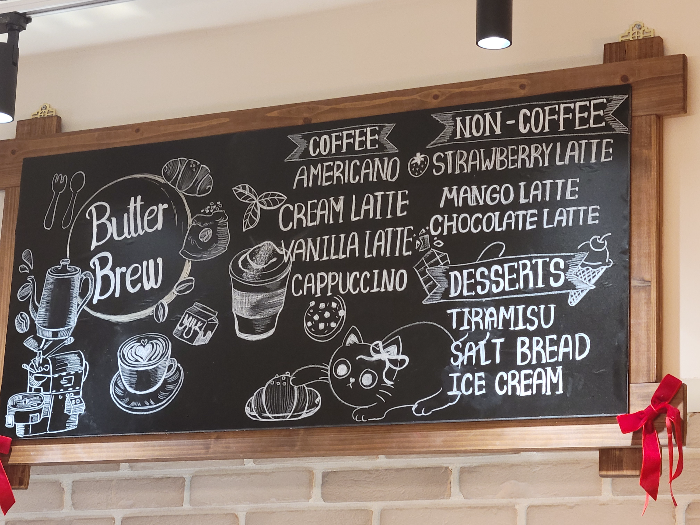 Butter
Brew
MILK
COFFEE
AMERICANO
CREAM LATTE
VANILLA LATTE
CAPPUCCINO
NON-COFFEE
STRAWBERRY LATTE
MANGO LATTE
CHOCOLATE LATTE
DESSERTS
TIRAMISU
SALT BREAD
ICE CREAM